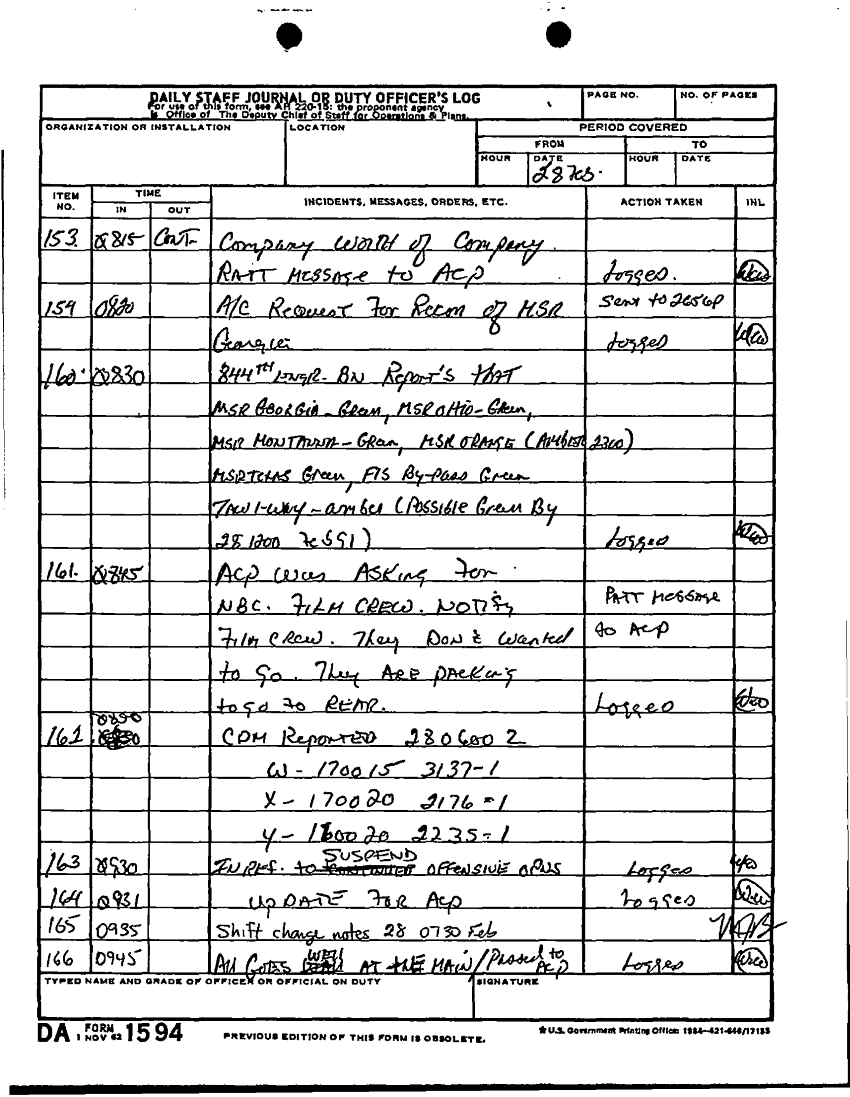 DAILY STAFF JOURNAL OR DUTY OFFICER'S LOG
For use of this form, see AR 220-15: the proponent agency
is Office of The Deputy Chief of Staff for Operations & Plans.
PAGE NO.
NO. OF PAGES
ORGANIZATION OR INSTALLATION
LOCATION
PERIOD COVERED
FROM
TO
HOUR
DATE
28 Feb.
HOUR
DATE
ITEM NO.
TIME
IN
OUT
INCIDENTS, MESSAGES, ORDERS, ETC.
ACTION TAKEN
INL
153. 0815 Cont- Company worth of Company
RATT Message to ACP Logged.
159 0820 A/C Request For Recon of MSR Sent to
Georgia Logged
160. 0830 844TH Engr. BN Report's that
MSR GEORGIA - Green, MSR OHIO - Green,
MSR MONTANNA - Green, MSR ORANGE (AMBER 2300)
MSR TEXAS Green, By-Pass Green
1-way - amber (Possible Green By
281200 ) Logged
161. 0845 ACP was ASKing For
NBC. FILM CREW. NOTify RATT MESSAGE
FILM CREW. They DON't wanted to ACP
to go. They ARE packing
to go to REAR. Logged
0850
162 CDM Reported 280600 Z
W - 170015 3137-1
X - 170020 2176-1
Y - 180020 2235-1
SUSPEND
163 0930 to OFFENSIVE OPNS Logged
164 0931 UpDATE FOR ACP Logged
165 0935 Shift change notes 28 0730 Feb
166 0945 All GOES WELL AT THE MAIN/Passed to ACP Logged
TYPED NAME AND GRADE OF OFFICER OR OFFICIAL ON DUTY
SIGNATURE
DA FORM 1 NOV 62 1594
PREVIOUS EDITION OF THIS FORM IS OBSOLETE.
☆ U.S. Government Printing Office: 1984-421-646/17135